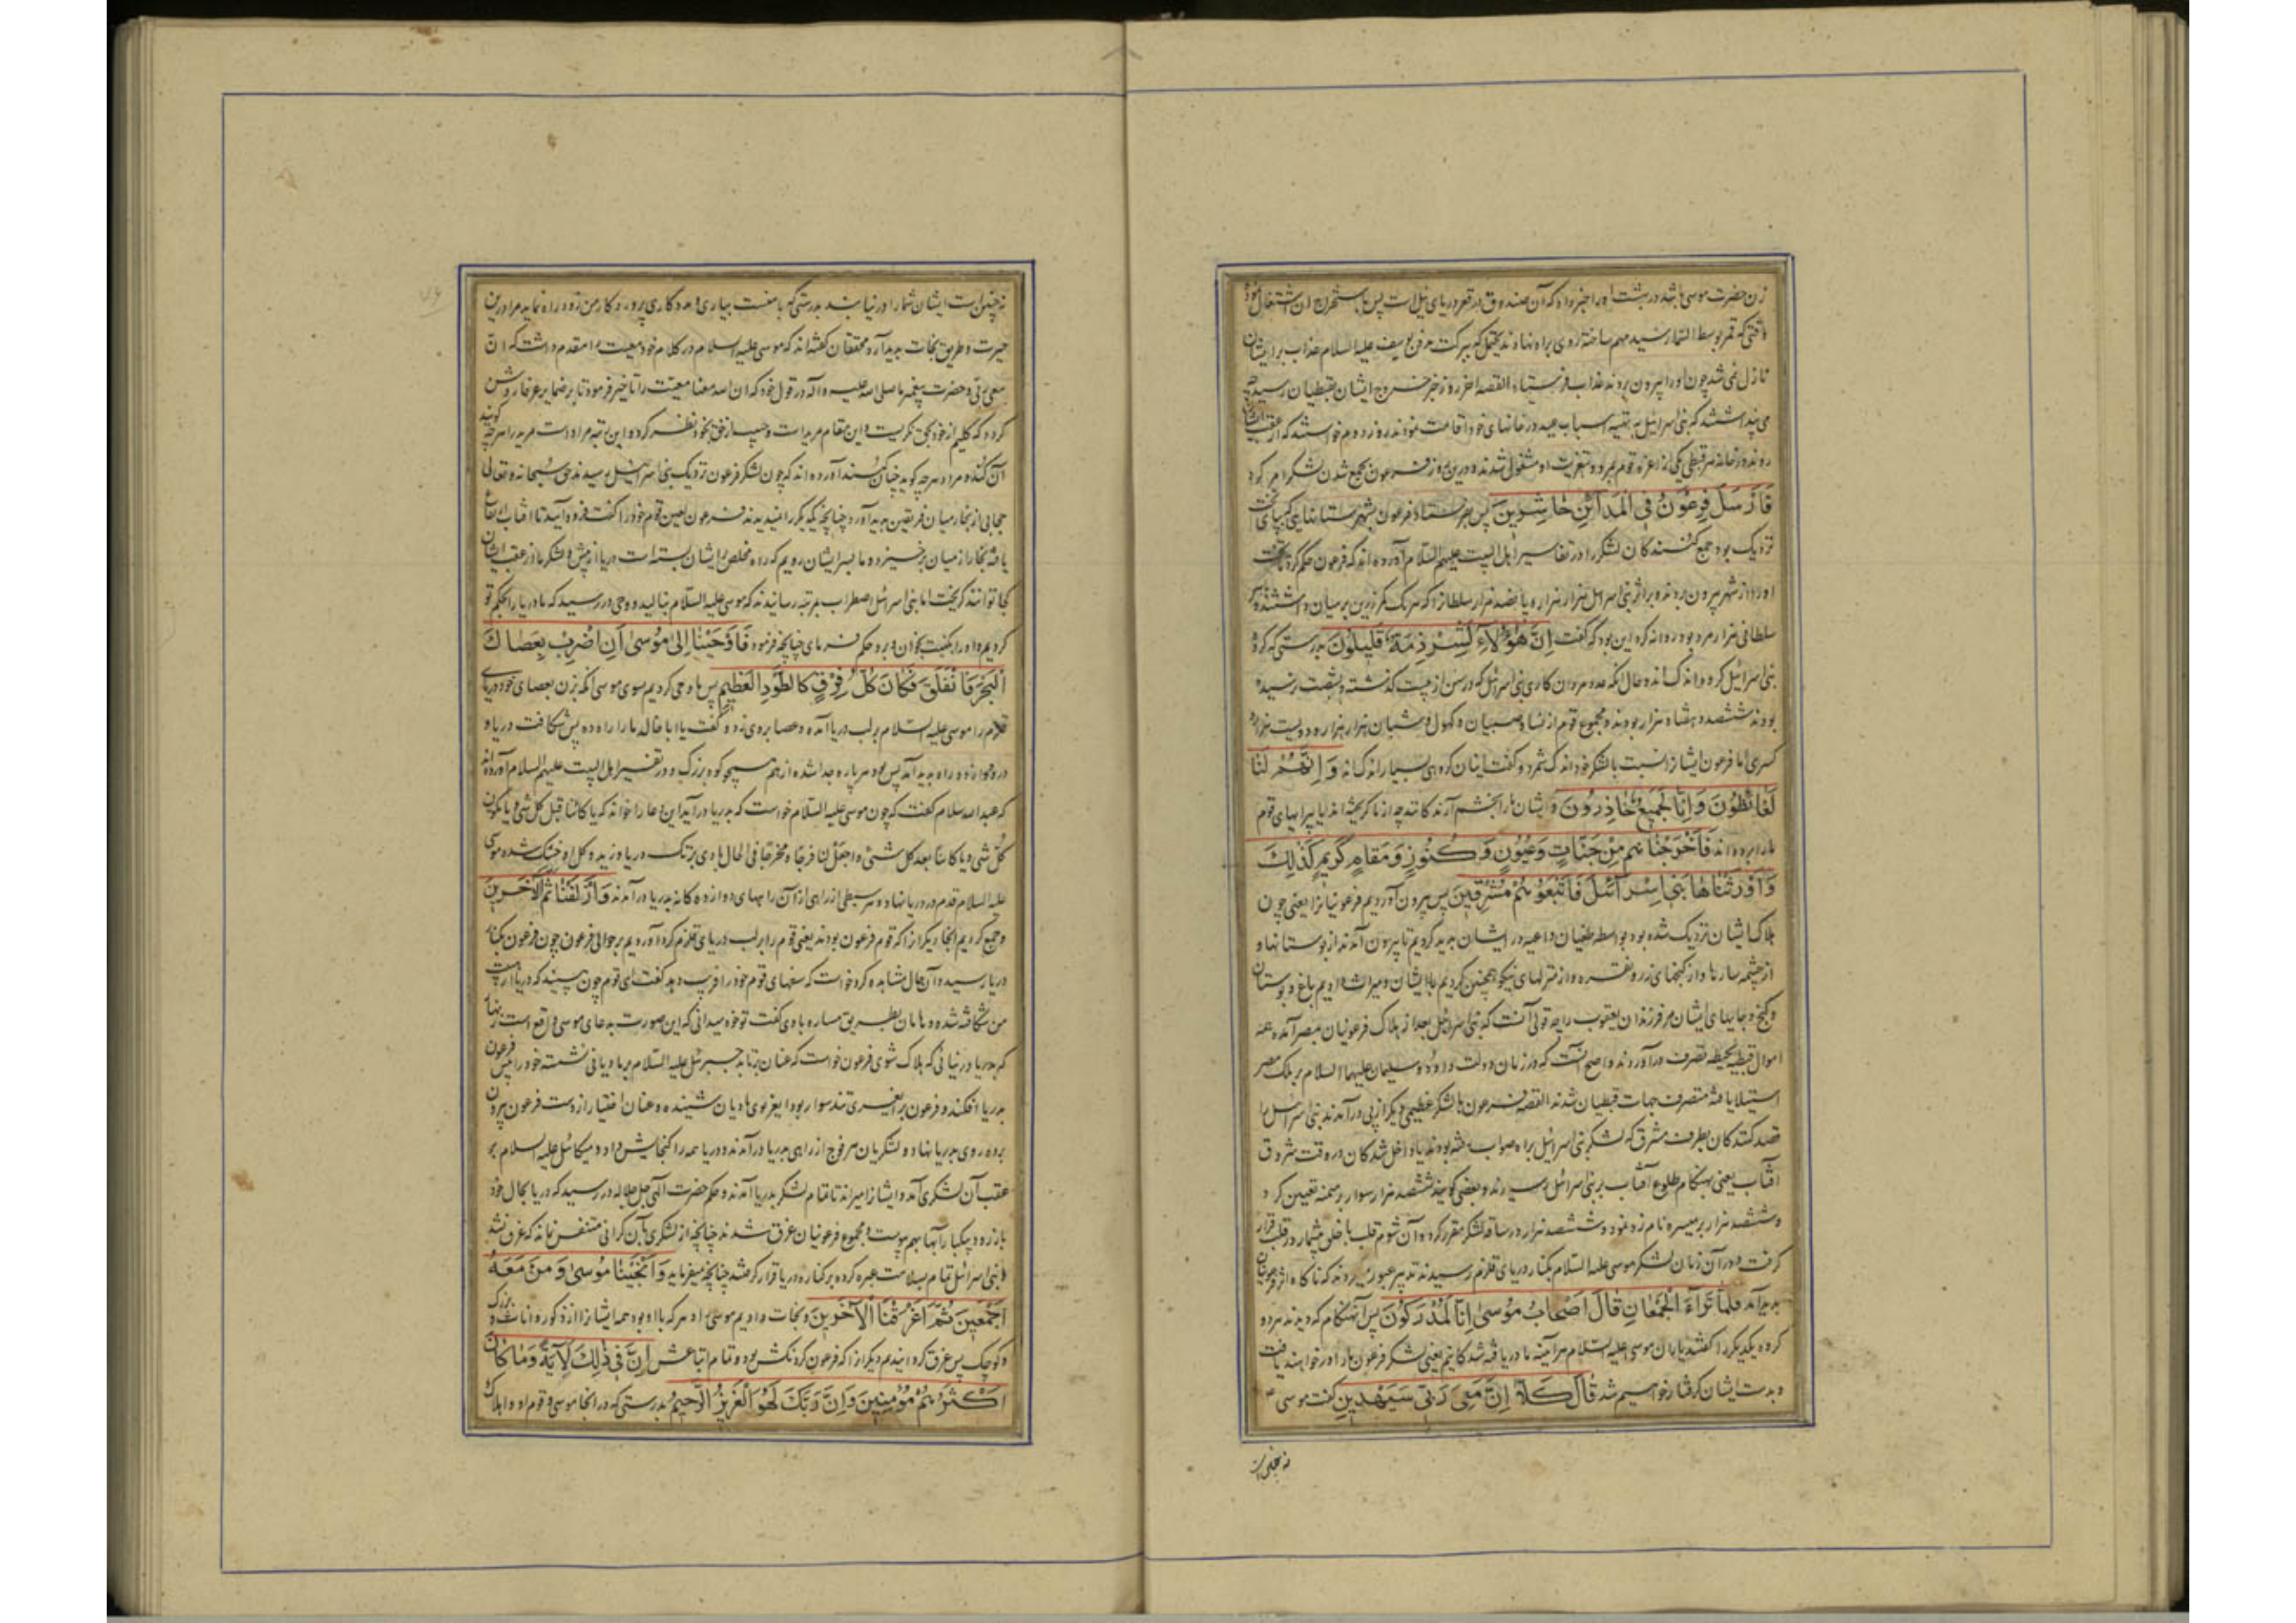 زن حضرت موسی باشد در بهشت اورا خبر داد که آن صندوق در قعر دریای نیل است پس باستخراج آن اشتغال نمود
وقتی که قمر بوسط السما رسید مهم ساخته روی براه نهادند یحتمل که ببرکت مدفن یوسف علیه السلام عذاب برایشان
نازل نمی شد چون اورا بیرون بردند عذاب فرستاد القصه اخر روز خبر خروج ایشان بقبطیان رسید
می پنداشتند که بنی اسرائیل به تهیه اسباب عید در خانهای خود اقامت نمودند روز دوم خواستند که از عقب ایشان
روند در خانه هر قبطی یکی از اعزه قوم بمرد و بتعزیت او مشغول شدند و درین روز فرعون بجمع شدن لشکر امر کرد
فَاَرْسَلَ فِرْعَوْنُ فِی الْمَدَائِنِ حَاشِرِینَ پس بفرستاد فرعون بشهرستانهایی که بپای تخت
نزدیک بود جمع کنندکان لشکر را در تفاسیر اهل البیت علیهم السلام آورده اند که فرعون حکم کرد تا تخت
اورا از شهر بیرون بردند و براثر بنی اسرائیل هزار هزار و پانصد هزار سلطان را که هر یک کمر زرین بر میان داشتند و با هر
سلطانی هزار مرد بود روانه کرد این بود که گفت اِنَّ هٰؤُلَاءِ لَشِرْذِمَةٌ قَلِیلُونَ بدرستی که گروه
بنی اسرائیل گروه اندک اند و حال آنکه عدد مردان کاری بنی اسرائیل که در سن از بیست گذشته و بشصت نرسیده
بودند ششصد و هفتاد هزار بودند و مجموع قوم از نساء و صبیان و کهول و شبان هزار هزار و دویست هزار
کسری اما فرعون ایشانرا نسبت بالشکر خود اندک شمرد و گفت اینان گروهی بسیار اندک اند وَ اِنَّهُمْ لَنَا
لَغَائِظُونَ وَ اِنَّا لَجَمِیعٌ حَاذِرُونَ و ایشان ما را بخشم آرندکانند چه از ما گریخته اند یا پیرایهای قوم
ما را برده اند فَاَخْرَجْنَاهُمْ مِنْ جَنَّاتٍ وَ عُیُونٍ وَ کُنُوزٍ وَ مَقَامٍ کَرِیمٍ کَذٰلِکَ
وَ اَوْرَثْنَاهَا بَنِی اِسْرَآئِلَ فَاَتْبَعُوهُمْ مُشْرِقِینَ پس بیرون آوردیم فرعونیانرا یعنی چون
هلاک ایشان نزدیک شده بود بواسطه طغیان داعیه در ایشان پدید کردیم تا بیرون آمدند از بوستانها و
از چشمه سارها و از گنجهای زر و نقره و از منزلهای نیکو همچنین کردیم با ایشان و میراث دادیم باغ و بوستان
و گنج و جایهای ایشان مر فرزندان یعقوب را چه قولی آنست که بنی اسرائیل بعد از هلاک فرعونیان بمصر آمده همه
اموال قبطیه بحیطه تصرف درآوردند و اصح آنست که در زمان دولت داود و سلیمان علیهما السلام بر ملک مصر
استیلا یافته متصرف جهات قبطیان شدند القصه فرعون با لشکر عظیمی دیگر از پی درآمدند بنی اسرائیل را
قصد کنندکان بطرف مشرق که لشکر بنی اسرائیل براه صواب رفته بودند یا داخل شدکان در وقت شروق
آفتاب یعنی بهنگام طلوع آفتاب بر بنی اسرائیل رسیدند و بعضی گویند ششصد هزار سوار بر میمنه تعیین کرد و
و ششصد هزار بر میسره نامزد نمود و ششصد هزار در ساقه لشکر مقرر کرد و آن شوم قلب با خلق بیشمار در قلب قرار
گرفت و در آن زمان لشکر موسی علیه السلام بکنار دریای قلزم رسیدند تدبیر عبور می کردند که ناکاه اثر فرعونیان
پدید آمد فَلَمَّا تَرَاءَ الْجَمْعَانِ قَالَ اَصْحَابُ مُوسٰی اِنَّا لَمُدْرَکُونَ پس آنهنگام که دیدند هر دو
گروه یکدیگر را گفتند یاران موسی علیه السلام هر آینه ما دریافته شدکانیم یعنی لشکر فرعون ما را در خواهند یافت
و بدست ایشان گرفتار خواهیم شد قَالَ کَلَّا اِنَّ مَعِیَ رَبِّی سَیَهْدِینِ گفت موسی
نه چنین است
نه چنین است ایشان شما را در نیابند بدرستی که با منست بیاری و مددکاری پروردکار من زود راه نماید مرا درین
حیرت و طریق نجات پدید آرد محققان گفته اند که موسی علیه السلام در کلام خود معیت را مقدم داشت که ان
معی ربی و حضرت پیغمبر ما صلی الله علیه و آله در قول خود که ان الله معنا معیت را تاخیر فرمود تا بر ضمایر عرفا روشن
گردد که کلیم از خود بحق نگریست و این مقام مریدست و حبیب از حق بخود نظر کرده و این رتبه مراد است مرید را هر چه گویند
آن کند و مراد هر چه گوید چنان کنند آورده اند که چون لشکر فرعون نزدیک بنی اسرائیل رسیدند حق سبحانه و تعالی
حجابی از بخار میان فریقین پدید آورد چنانچه یکدیگر را نمیدیدند فرعون لعین قوم خود را گفت فرود آیید تا آفتاب ارتفاع
یافته بخار از میان برخیزد و ما بسر ایشان رویم که راه مخلص بر ایشان بسته است دریا از پیش و لشکر ما از عقب ایشان
کجا توانند گریخت اما بنی اسرائیل اضطراب بمرتبه رسانیدند که موسی علیه السلام بنالید و وحی در رسید که ما دریا را بحکم تو
کردیم و او را بکنیت بخوان و برو حکم فرمای چنانچه فرمود فَاَوْحَیْنَا اِلٰی مُوسٰی اَنِ اضْرِبْ بِعَصَاکَ
الْبَحْرَ فَانْفَلَقَ فَکَانَ کُلُّ فِرْقٍ کَالطَّوْدِ الْعَظِیمِ پس ما وحی کردیم بسوی موسی آنکه بزن بعصای خود دریای
قلزم را موسی علیه السلام بر لب دریا آمده و عصا بروی زد و گفت یا ابا خالد ما را راه ده پس شکافت دریا و
درو دوازده راه پدید آمد پس بود هر پاره جدا شده از هم همچو کوه بزرگ و در تفسیر اهل البیت علیهم السلام آورده اند
که عبد الله سلام گفت که چون موسی علیه السلام خواست که بدریا درآید این دعا را خواند که یا کائنا قبل کل شئ و یا مکون
کل شئ و یا کائنا بعد کل شئ اجعل لنا فرجا و مخرجا فی الحال بادی بر تک دریا وزید و گل او خشک شده موسی
علیه السلام قدم در دریا نهاد و هر سبطی از راهی از آن راههای دوازده کانه بدریا درآمدند وَ اَزْلَفْنَا ثَمَّ الْآخَرِینَ
و جمع کردیم آنجا دیگران را که قوم فرعون بودند یعنی قوم را بر لب دریای قلزم گرد آوردیم بر حوالی فرعون چون فرعون بکنار
دریا رسید و آن حال مشاهده کرد خواست که سفهای قوم خود را فریب دهد گفت ای قوم چون بینید که دریا از هیبت
من شکافته شده و هامان بطریق مساره با وی گفت تو خود میدانی که این صورت بدعای موسی واقع است زنهار
که بدریا در نیائی که هلاک شوی فرعون خواست که عنان برتابد جبرئیل علیه السلام بر مادیانی نشسته خود را پیش فرعون
بدریا افکند و فرعون بر ایغری تند سوار بود ایغر بوی مادیان شنیده و عنان اختیار از دست فرعون بیرون
برده روی بدریا نهاد و لشکریان هر فوج از راهی بدریا درآمدند و دریا همه را گنجایش داد و میکائیل علیه السلام بر
عقب آن لشکری آمد و ایشانرا میراند تا تمام لشکر بدریا آمدند و حکم حضرت الهی جل جلاله در رسید که دریا بحال خود
باز رود بیکبار آبها بهم پیوست و مجموع فرعونیان غرق شدند چنانچه از لشکری بآن گرانی متنفس نماند که غرق نشد
و بنی اسرائیل تمام بسلامت عبره کرده بر کناره دریا قرار گرفتند چنانچه میفرماید وَ اَنْجَیْنَا مُوسٰی وَ مَنْ مَعَهُ
اَجْمَعِینَ ثُمَّ اَغْرَقْنَا الْآخَرِینَ و نجات دادیم موسی را و هر که با او بود همه ایشانرا از ذکور و اناث و بزرگ
و کوچک پس غرق کردانیدیم دیگران را که فرعون گردنکش بود و تمام اتباعش اِنَّ فِی ذٰلِکَ لَآیَةً وَ مَا کَانَ
اَکْثَرُهُمْ مُؤْمِنِینَ وَ اِنَّ رَبَّکَ لَهُوَ الْعَزِیزُ الرَّحِیمُ بدرستی که در انجا موسی و قوم او و اهلاک